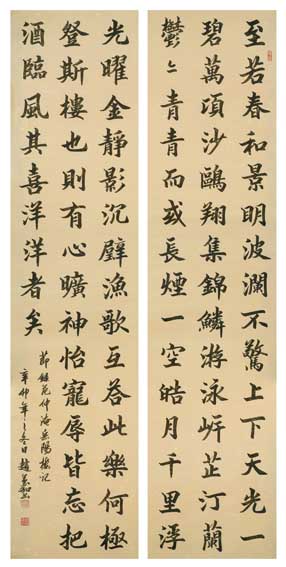 至若春和景明波瀾不驚上下天光一
碧萬頃沙鷗翔集錦鱗游泳岸芷汀蘭
鬱々青青而或長煙一空皓月千里浮
光曜金靜影沉璧漁歌互荅此樂何極
登斯樓也則有心曠神怡寵辱皆忘把
酒臨風其喜洋洋者矣
節錄范仲淹岳陽樓記
辛卯年之冬日趙